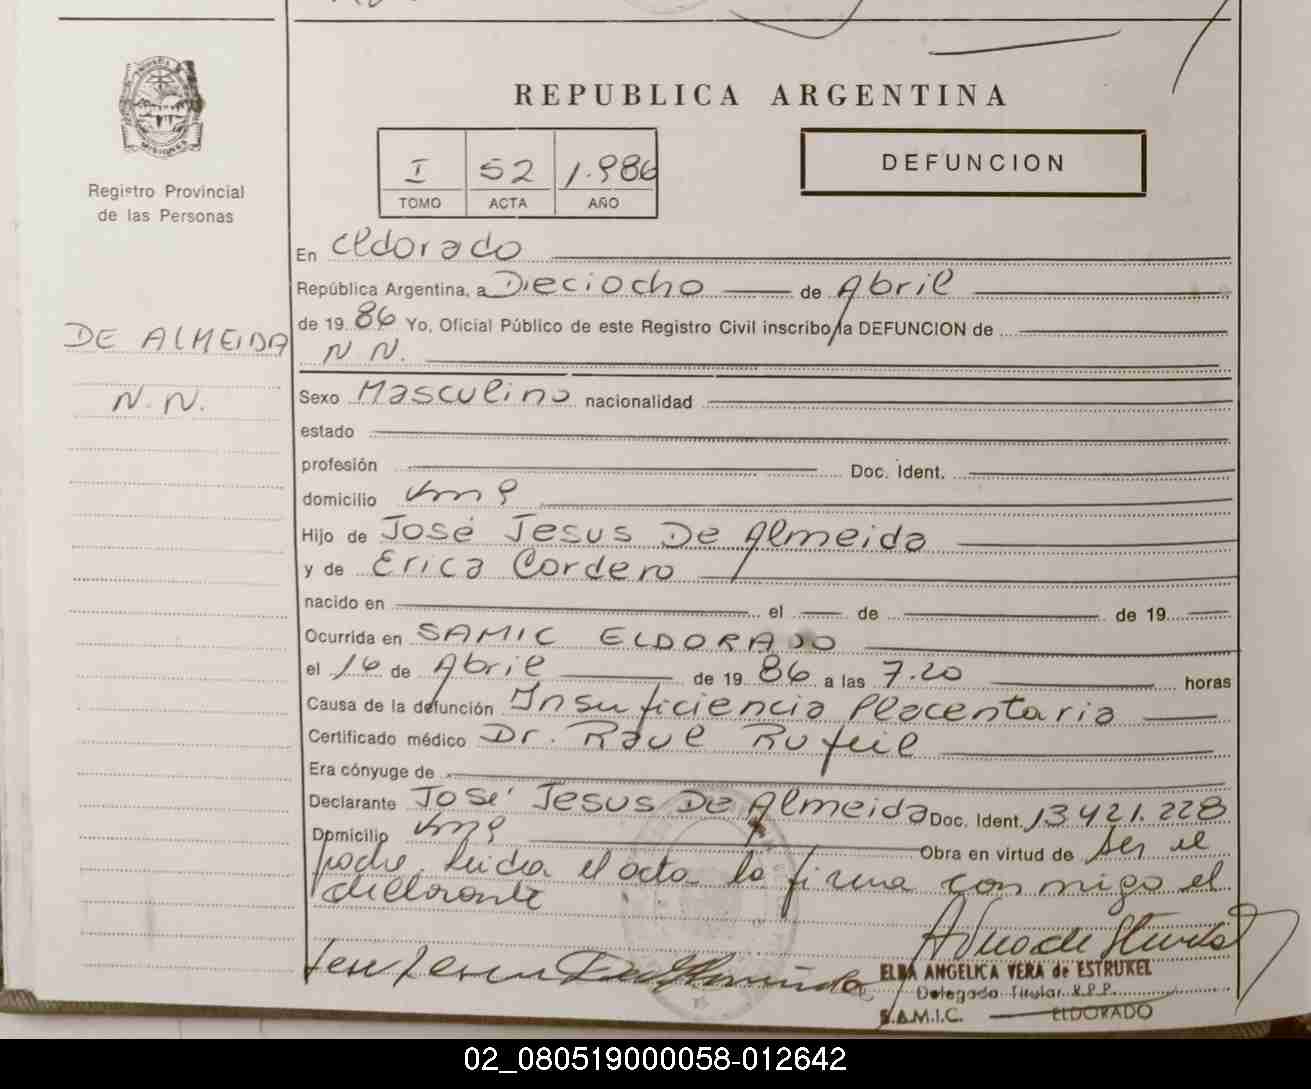 MISIONES
Registro Provincial
de las Personas
DE ALMEIDA
N. N.
REPUBLICA ARGENTINA
I 52 1.986
TOMO ACTA AÑO
DEFUNCION
En Eldorado
República Argentina, a Dieciocho de Abril
de 19 86 Yo, Oficial Público de este Registro Civil inscribo la DEFUNCION de
N N.
Sexo Masculino nacionalidad
estado
profesión Doc. Ident.
domicilio Km 9
Hijo de José Jesus De Almeida
y de Erica Cordero
nacido en el de de 19
Ocurrida en SAMIC ELDORADO
el 16 de Abril de 19 86 a las 7.20 horas
Causa de la defunción Insuficiencia Placentaria
Certificado médico Dr. Raul
Era cónyuge de
Declarante José Jesus De Almeida Doc. Ident. 13421.228
Domicilio Km 9 Obra en virtud de ser el
padre leida el acta la firma con migo el
declarante
ELBA ANGELICA VERA de ESTRUKEL
Delegada Titular R.P.P.
S.A.M.I.C. ELDORADO
02_080519000058-012642